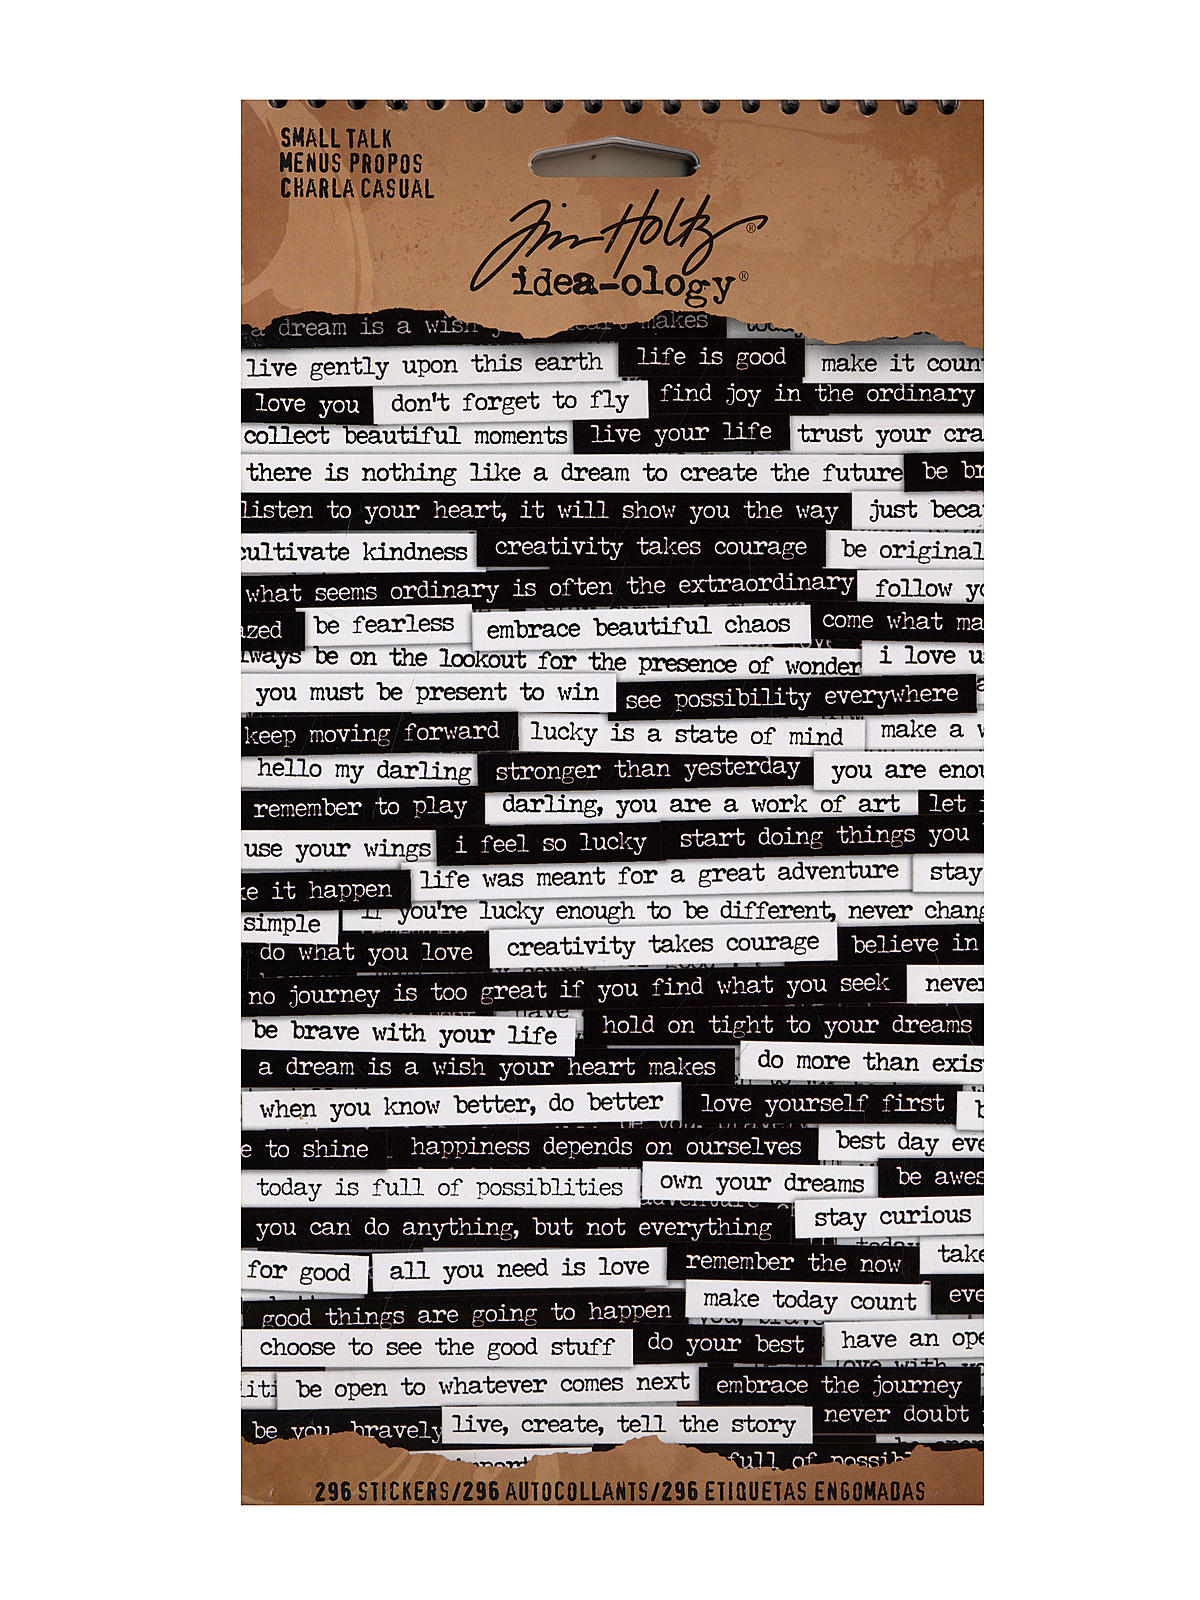 SMALL TALK
MENUS PROPOS
CHARLA CASUAL
Tim Holtz ®
idea-ology®
a dream is a wish makes
live gently upon this earth life is good make it coun
love you don't forget to fly find joy in the ordinary
collect beautiful moments live your life trust your cra
there is nothing like a dream to create the future be br
listen to your heart, it will show you the way just beca
cultivate kindness creativity takes courage be original
what seems ordinary is often the extraordinary follow yo
azed be fearless embrace beautiful chaos come what ma
lways be on the lookout for the presence of wonder i love u
you must be present to win see possibility everywhere
keep moving forward lucky is a state of mind make a w
hello my darling stronger than yesterday you are enou
remember to play darling, you are a work of art let
use your wings i feel so lucky start doing things you
ke it happen life was meant for a great adventure stay
simple if you're lucky enough to be different, never chang
do what you love creativity takes courage believe in
no journey is too great if you find what you seek never
be brave with your life hold on tight to your dreams
a dream is a wish your heart makes do more than exis
when you know better, do better love yourself first
e to shine happiness depends on ourselves best day eve
today is full of possiblities own your dreams be awes
you can do anything, but not everything stay curious
for good all you need is love remember the now take
good things are going to happen make today count eve
choose to see the good stuff do your best have an ope
liti be open to whatever comes next embrace the journey
be you, bravely live, create, tell the story never doubt
full of possib
296 STICKERS/296 AUTOCOLLANTS/296 ETIQUETAS ENGOMADAS